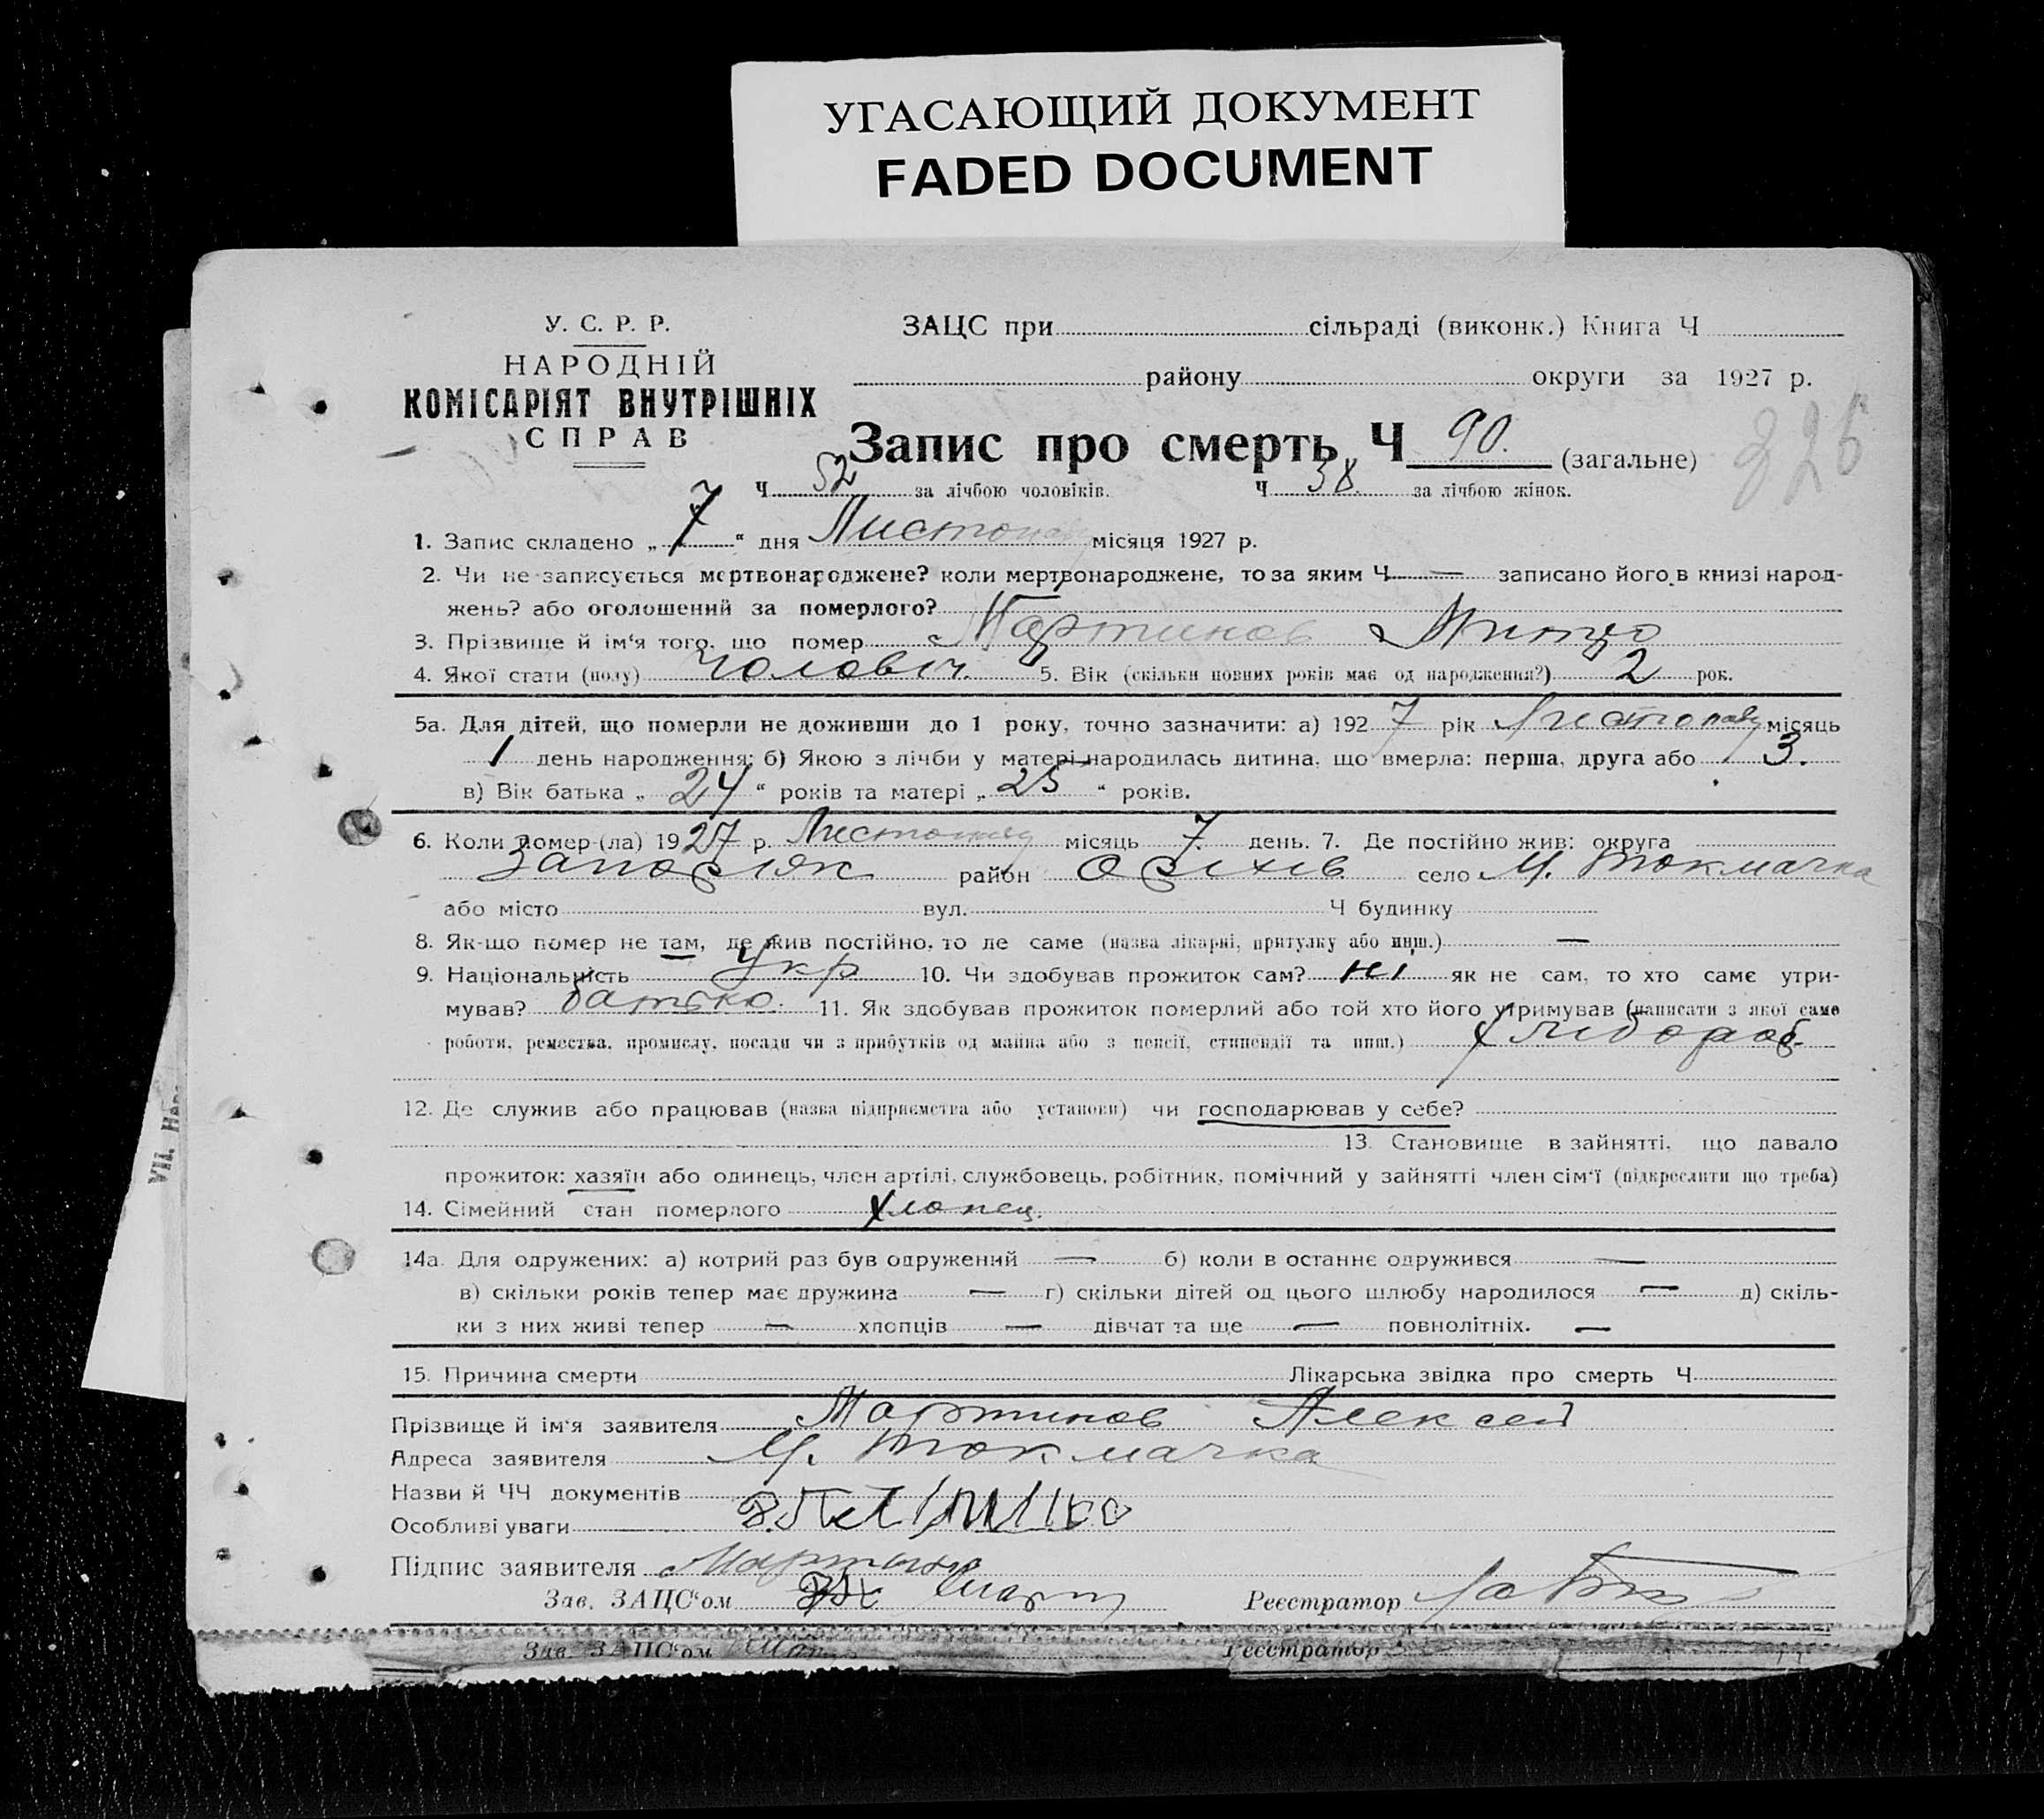 УГАСАЮЩИЙ ДОКУМЕНТ
FADED DOCUMENT
У. С. Р. Р.
НАРОДНІЙ
КОМІСАРІЯТ ВНУТРІШНІХ
СПРАВ
ЗАЦС при сільраді (виконк.) Книга Ч
району округи за 1927 р.
Запис про смерть Ч 90. (загальне)
326
Ч 52 за лічбою чоловіків. Ч 38 за лічбою жінок.
1. Запис складено „ 7 “ дня Листопад місяця 1927 р.
2. Чи не записується мертвонароджене? коли мертвонароджене, то за яким Ч — записано його в книзі народ-
жень? або оголошений за померлого?
3. Прізвище й ім‘я того, що помер Мартинов Митро
4. Якої стати (полу) чоловіч. 5. Вік (скільки повних років має од народження?) 2 рок.
5а. Для дітей, що померли не доживши до 1 року, точно зазначити: а) 1927 рік Листопад місяць
1 день народження; б) Якою з лічби у матері народилась дитина, що вмерла: перша, друга або 3.
в) Вік батька „ 24 “ років та матері „ 25 “ років.
6. Коли помер (ла) 1927 р. Листопад місяць 7 день. 7. Де постійно жив: округа
Запоріжж район Оріхів село М. Токмачка
або місто вул. Ч будинку
8. Як-що помер не там, де жив постійно, то де саме (назва лікарні, притулку або инш.) —
9. Національність Укр 10. Чи здобував прожиток сам? ні як не сам, то хто саме утри-
мував? батько. 11. Як здобував прожиток померлий або той хто його утримував (написати з якої саме
роботи, ремества, промислу, посади чи з прибутків од майна або з пенсії, стипендії та инш.) хлібороб.
12. Де служив або працював (назва підприємства або установи) чи господарював у себе?
13. Становище в зайнятті, що давало
прожиток: хазяїн або одинець, член артілі, службовець, робітник, помічний у зайнятті член сім‘ї (підкреслити що треба)
14. Сімейний стан померлого хлопец.
14а. Для одружених: а) котрий раз був одружений — б) коли в останнє одружився —
в) скільки років тепер має дружина — г) скільки дітей од цього шлюбу народилося — д) скіль-
ки з них живі тепер — хлопців — дівчат та ще — повнолітніх. —
15. Причина смерти Лікарська звідка про смерть Ч
Прізвище й ім‘я заявителя Мартинов Алексей
Адреса заявителя М. Токмачка
Назви й ЧЧ документів
Особливі уваги
Підпис заявителя
Зав. ЗАЦС‘ом Реєстратор
Зав. ЗАЦС‘ом Реєстратор